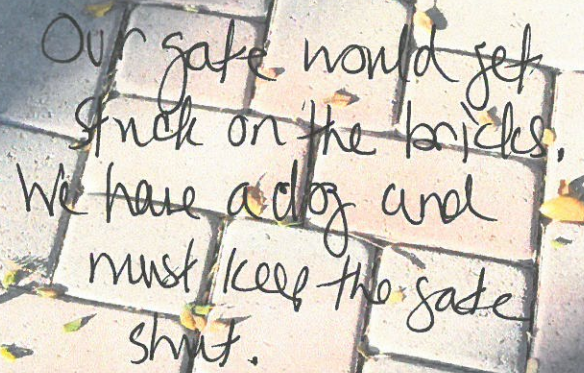 Our gate would get
stuck on the bricks.
We have a dog and
must keep the gate
shut.